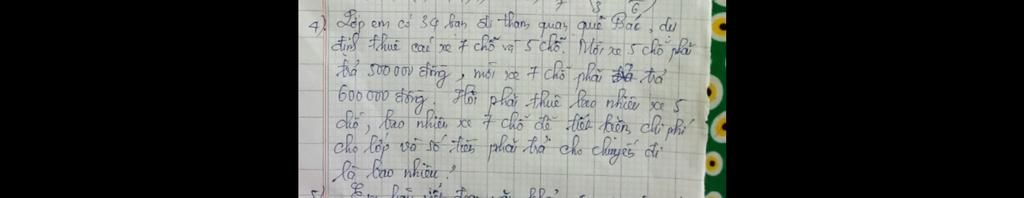 4) Lớp em có 34 bạn đi tham quan quê Bác, dự
định thuê các xe 7 chỗ và 5 chỗ. Mỗi xe 5 chỗ phải
trả 500 000 đồng, mỗi xe 7 chỗ phải trả
600 000 đồng. Hỏi phải thuê bao nhiêu xe 5
chỗ, bao nhiêu xe 7 chỗ để tiết kiệm chi phí
cho lớp và số tiền phải trả cho chuyến đi
là bao nhiêu?
5)